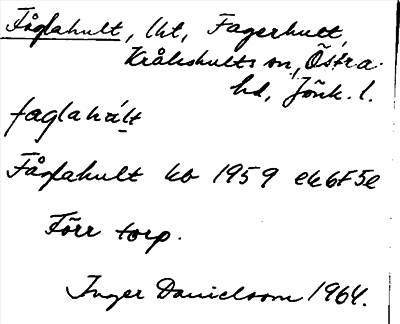 Fåglahult, lht, Fagerhult,
Kråkshults sn, Östra
hd, Jönk. l.
faglahult
Fåglahult kb 1959 ek6F5e
Förr torp.
Inger Danielsson 1964.